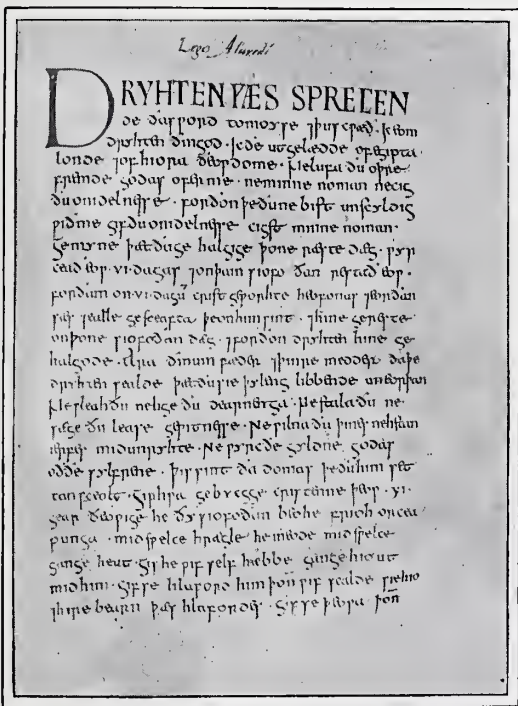 Leges Aluredi
DRYHTEN ǷÆS SPRECEN
ðe ðas ƿord to moyse ⁊ þus cƿæð · Ic eom
dryhten ðin god · Ic ðe ut gelædde of egipta
londe ⁊ of hiora ðeoƿdome · Ne lufa ðu oþre
fremde godas ofer me · ne minne noman ne cig
ðu on idelnesse · forðon þe ðu ne bist unscyldig
ƿið me gif ðu on idelnesse cigst minne noman ·
Gemyne þæt ðu gehalgige þone ræste dæg · ƿyr
ceað eoƿ · VI · dagas ⁊ on þam siofoðan restað eoƿ ·
forðam on · VI · dagū crist geƿorhte heofonas ⁊ eorðan
sæs ⁊ ealle gesceafta þe on him sint · ⁊ hine gereste
on þone siofoðan dæg · ⁊ forðon dryhten hine ge
halgode · Ara ðinum fæder ⁊ þinre medder ða þe
dryhten sealde þæt ðu sie þy leng libbende on eorþan
Ne sleah ðu ne lige ðu dearnenga · Ne stala ðu ne
sæge ðu lease geƿitnesse · Ne ƿilna ðu þines nehstan
ierfes mid unryhte · Ne ƿyrc ðe gyldne godas
oððe sylfrene · Þis sint ða domas þe ðu him set
tan scealt · Gif hƿa gebycgge cristenne þeoƿ · VI ·
gear ðeoƿige he ðy siofoðan beo he frioh orcea
punga · mid sƿelce hrægle he ineode mid sƿelce
gange he ut · Gif he ƿif self hæbbe gange hio ut
mid him · Gif se hlaford him þoñ ƿif sealde sie hio
⁊ hire bearn þæs hlafordes · Gif se þeoƿa þoñ